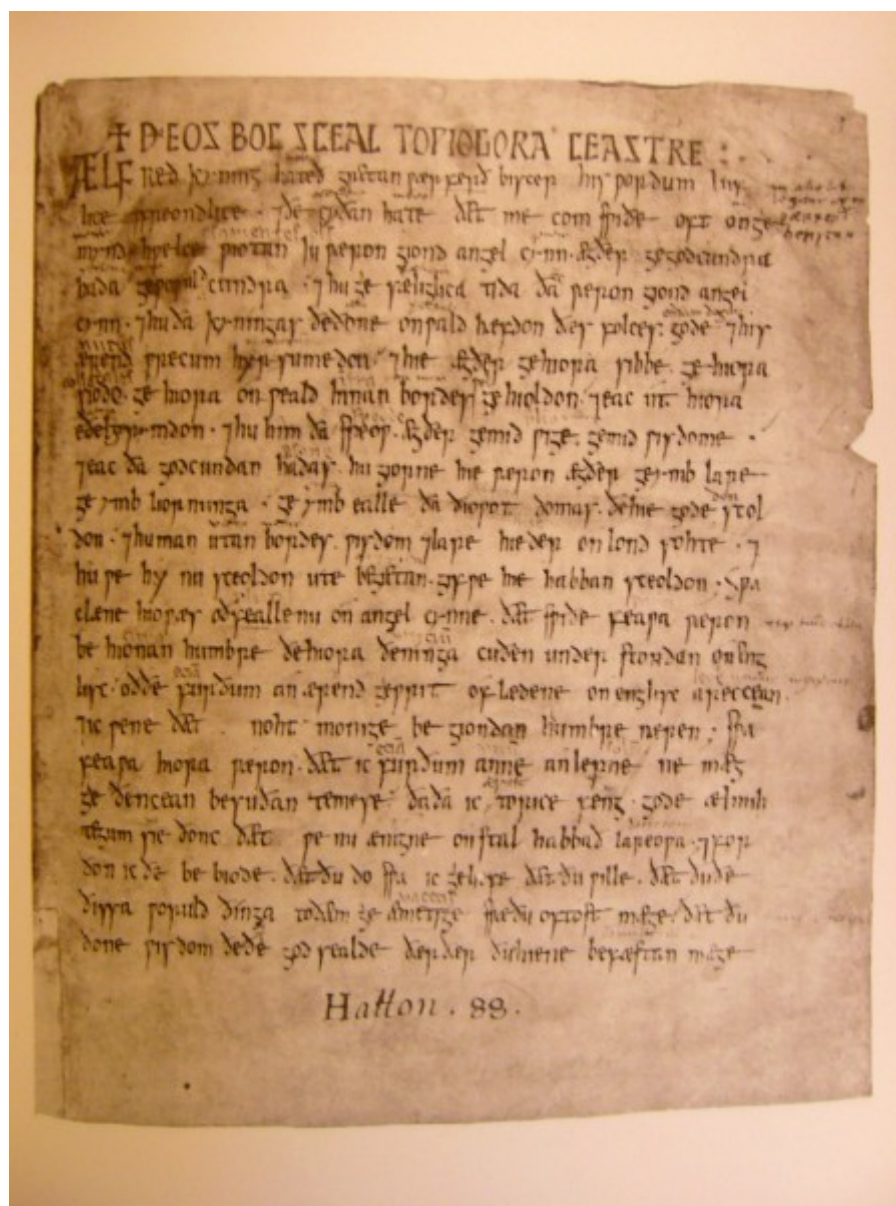 ✝ ÐEOS BOC SCEAL TO ǷIOGORA CEASTRE
ÆLFRED kyning hateð gretan ƿærferð biscep his ƿordum luf
lice ⁊ freondlice · ⁊ ðe cyðan hate ðæt me com sƿiðe oft on ge
mynd hƿelce ƿiotan iu ƿæron giond angel cynn · ægðer ge godcundra
hada ge ƿoruld cundra · ⁊ hu gesæliglica tida ða ƿæron giond angel
cynn · ⁊ hu ða kyningas ðe ðone onƿald hæfdon ðæs folces · gode ⁊ his
ærend ƿrecum hersumedon · ⁊ hie ægðer ge hiora sibbe · ge hiora
siodo · ge hiora onƿeald innan bordes gehioldon · ⁊ eac ut hiora
eðel rymdon · ⁊ hu him ða speop · ægðer ge mid ƿige · ge mid ƿisdome ·
⁊ eac ða godcundan hadas · hu giorne hie ƿæron ægðer ge ymb lare
ge ymb liornunga · ge ymb ealle ða ðioƿot domas · ðe hie gode scol
don · ⁊ hu man utan bordes · ƿisdom ⁊ lare hieder on lond sohte · ⁊
hu ƿe hy nu sceoldon ute begietan · gif ƿe hie habban sceoldon · sƿa
clæne hio ƿæs oðfeallenu on angel cynne · ðæt sƿiðe feaƿa ƿæron
be hionan humbre ðe hiora ðeninga cuðen understondan on eng
lisc · oððe furðum an ærend geƿrit of lædene on englisc areccean
⁊ ic ƿene ðæt noht monige be giondan humbre næren · sƿa
feaƿa hiora ƿæron · ðæt ic furðum anne anlepne ne mæg
ge ðencean be suðan temese · ða ða ic to rice feng · gode ælmih
tegum sie ðonc ðæt ƿe nu ænigne onstal habbað lareoƿa · ⁊ for
ðon ic ðe be biode · ðæt ðu do sƿa ic geliefe ðæt ðu ƿille · ðæt ðu ðe
ðissa ƿoruld ðinga to ðæm ge æmetige sƿæ ðu oftost mæge · ðæt ðu
ðone ƿisdom ðe ðe god sealde ðær ðær ðu hiene befæstan mæge
Hatton . 88 .